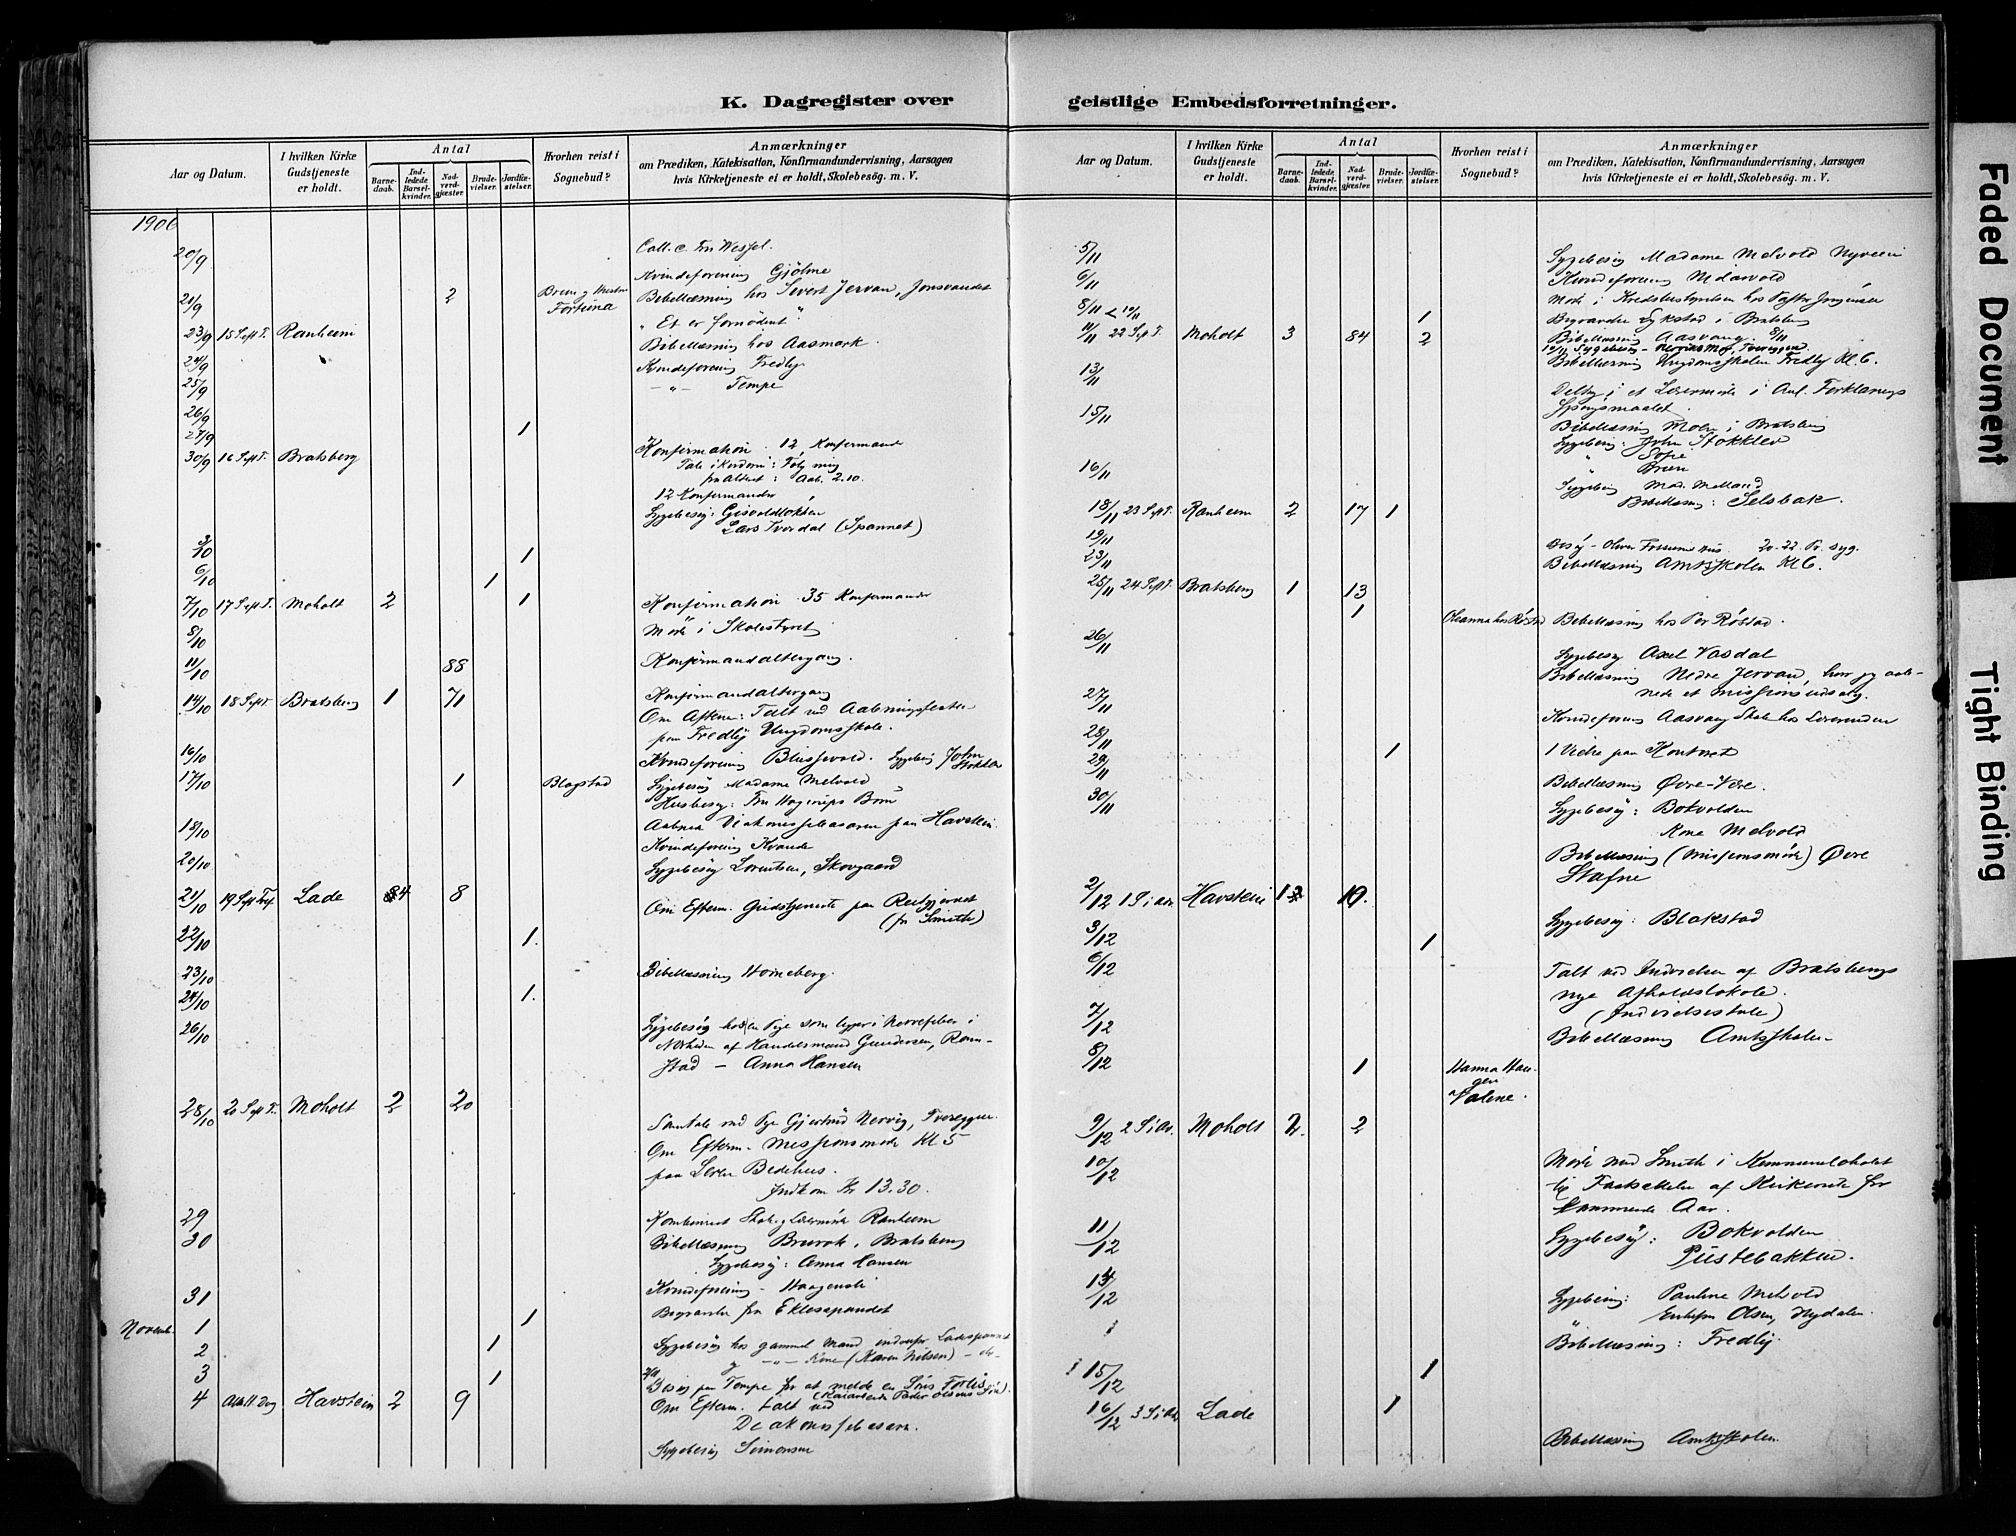 K. Dagregister over geistlige Embedsforretninger.
Aar og Datum.
I hvilken Kirke Gudstjeneste er holdt.
Antal
Barnedaab.
Indledede Barselkvinder.
Nadverdgjester.
Brudevielser.
Jordfæstelser.
Hvorhen reist i Sognebud?
Anmærkninger
om Prædiken, Katekisation, Konfirmandundervisning, Aarsagen
hvis Kirketjeneste ei er holdt, Skolebesøg. m. V.
1906
20/9 Fru Wessel.
Kvindeforening Gjölme
21/9 2 Fortuna Bibellæsning hos Sivert Jervan, Jonsvandet
"Et er fornødent"
23/9 15 S e f T. Ranheim Bibellæsning hos Aasmark.
24/9 Kvindeforening Fredly
25/9 — " — Tempe
26/9
27/9 1
30/9 16 S e f T. Bratsberg Konfirmation 12 Konfirmander
12 Konfirmander
Sygebesøg: Gisvoldlökken
Lars Tverdal (Spannet)
3/10 1
6/10 1
7/10 17 S e f T. Moholt 2 1 Konfirmation 35 Konfirmander
8/10 Møde i Skolestyret
11/10 88 Konfirmandaltergang.
14/10 18 S e f T. Bratsberg 1 71 Konfirmandaltergang
Om Aftenen: Talt ved Aabningsfesten
paa Fredly Ungdomsskole.
16/10 Kvindeforening Sygebesøg John Stokklev
17/10 1 Blagstad Sygebesøg Madame Melvold
Husbesøg: Fru Hagerups Børn
18/10 Aabned Diakonissebasaren paa Havstein.
Kvindeforening Kvande
20/10 Sygebesøg Lorentsen, Skovgaard
21/10 19 S e f Tref. Lade 4 8 Om Efterm. Gudstjeneste paa Reitgjerdet
(fr Smith)
22/10 1.
23/10 Bibellæsning Hoineberg.
24/10 1.
26/10 Sygebesøg hos en Pige som ligger i Nervefeber i
Nærheden af Handelsmand Gundersen, Rønningstad — Anna Hansen
28/10 20 S e f T. Moholt 2 20 Samtale med Pige Gjertrud Nervig, Tvereggen.
Om Efterm. Missionsmøde Kl 5
paa Bedehus.
Indkom Kr 13.30.
29 Kombineret Skole og Lærermøde Ranheim
30 Bibellæsning Brurok, Bratsberg
Sygebesøg: Anna Hansen
31 Kvindeforening - Haagensli
Novemb. 1 1 Begravelse fra Eklesspandet
2 1 Sygebesøg hos gammel Mand indenfor Ladespannet
Kone (Karen Nilsen) — do —
3 1 Besøg paa Tempe for at melde en Søns Forlis
4 Alleh. Dag Havstein 2 9 Om Efterm. talt ved
Deakonissebasaren.
Sygebesøg Simonsen
Aar og Datum.
I hvilken Kirke Gudstjeneste er holdt.
Antal
Barnedaab.
Indledede Barselkvinder.
Nadverdgjester.
Brudevielser.
Jordfæstelser.
Hvorhen reist i Sognebud?
Anmærkninger
om Prædiken, Katekisation, Konfirmandundervisning, Aarsagen
hvis Kirketjeneste ei er holdt, Skolebesøg. m. V.
5/11 Sygebesøg Madame Melvold Nyveien
6/11 Kvindeforening Moldsvold
8/11 < 10/11 1 Møde i Kredsbestyrelsen hos Pastor Jørgensen
Begravelse i Bratsberg
11/11 22 S e f T. Moholt 3 84 2 Bibellæsning Aasvang 8/11
13/11 Bibellæsning Ungdomsskolen Fredly Kl. 6.
15/11 Deltog i et Lærermøde i Anl. Forklarings
Spørgsmaalet.
Bibellæsning Moen i Bratsberg
Sygebesøg: John Stokklev
16/11 Sygebesøg Mad. Melland
Bibellæsning: Selsbak.
18/11 23 S e f T. Ranheim 2 17 1
19/11
23/11 Bibellæsning Amtsskolen Kl 6.
25/11 24 S e f T. Bratsberg 1 13
1 Oleanna hos Røstad Bibellæsning hos Per Røstad.
26/11 Sygebesøg Axel Vasdal
27/11 Bibellæsning Nedre Jervan, hvor jeg aabnede et missionsudsalg.
28/11 Kvindeforening Aasvang Skole hos Lærerinden
29/11 1 1 Vielse paa Kontoret
30/11 Bibellæsning Øvre-Være.
Sygebesøg: Bokvolden
Kone Melvold
Bibellæsning (Missionsmøde) Øvre
Stafne
2/12 1 S i Adv. Havstein Sygebesøg: Blakstad
3/12 1
6/12 Talt ved Indvielsen af Bratsbergs
nye Afholdslokale.
(Indvielsestale)
7/12 Bibellæsning Amtsskolen
8/12 1 Hanna Haugen
Valene.
9/12 2 S i Adv. Moholt 2. 2
10/12 Møde med Smith i Kemnerlokalet
til Fastsættelse af Kirkerute for
kommende Aar.
11/12 Sygebesøg: Bokvolden
Pustebakken.
14/12 Sygebesøg: Pauline Melvold
Olsen, Nydalen.
Bibellæsning: Fredly.
15/12 1
16/12 3 S i Adv Lade 1
Bibellæsning Amtsskolen.
Faded Document
Tight Binding